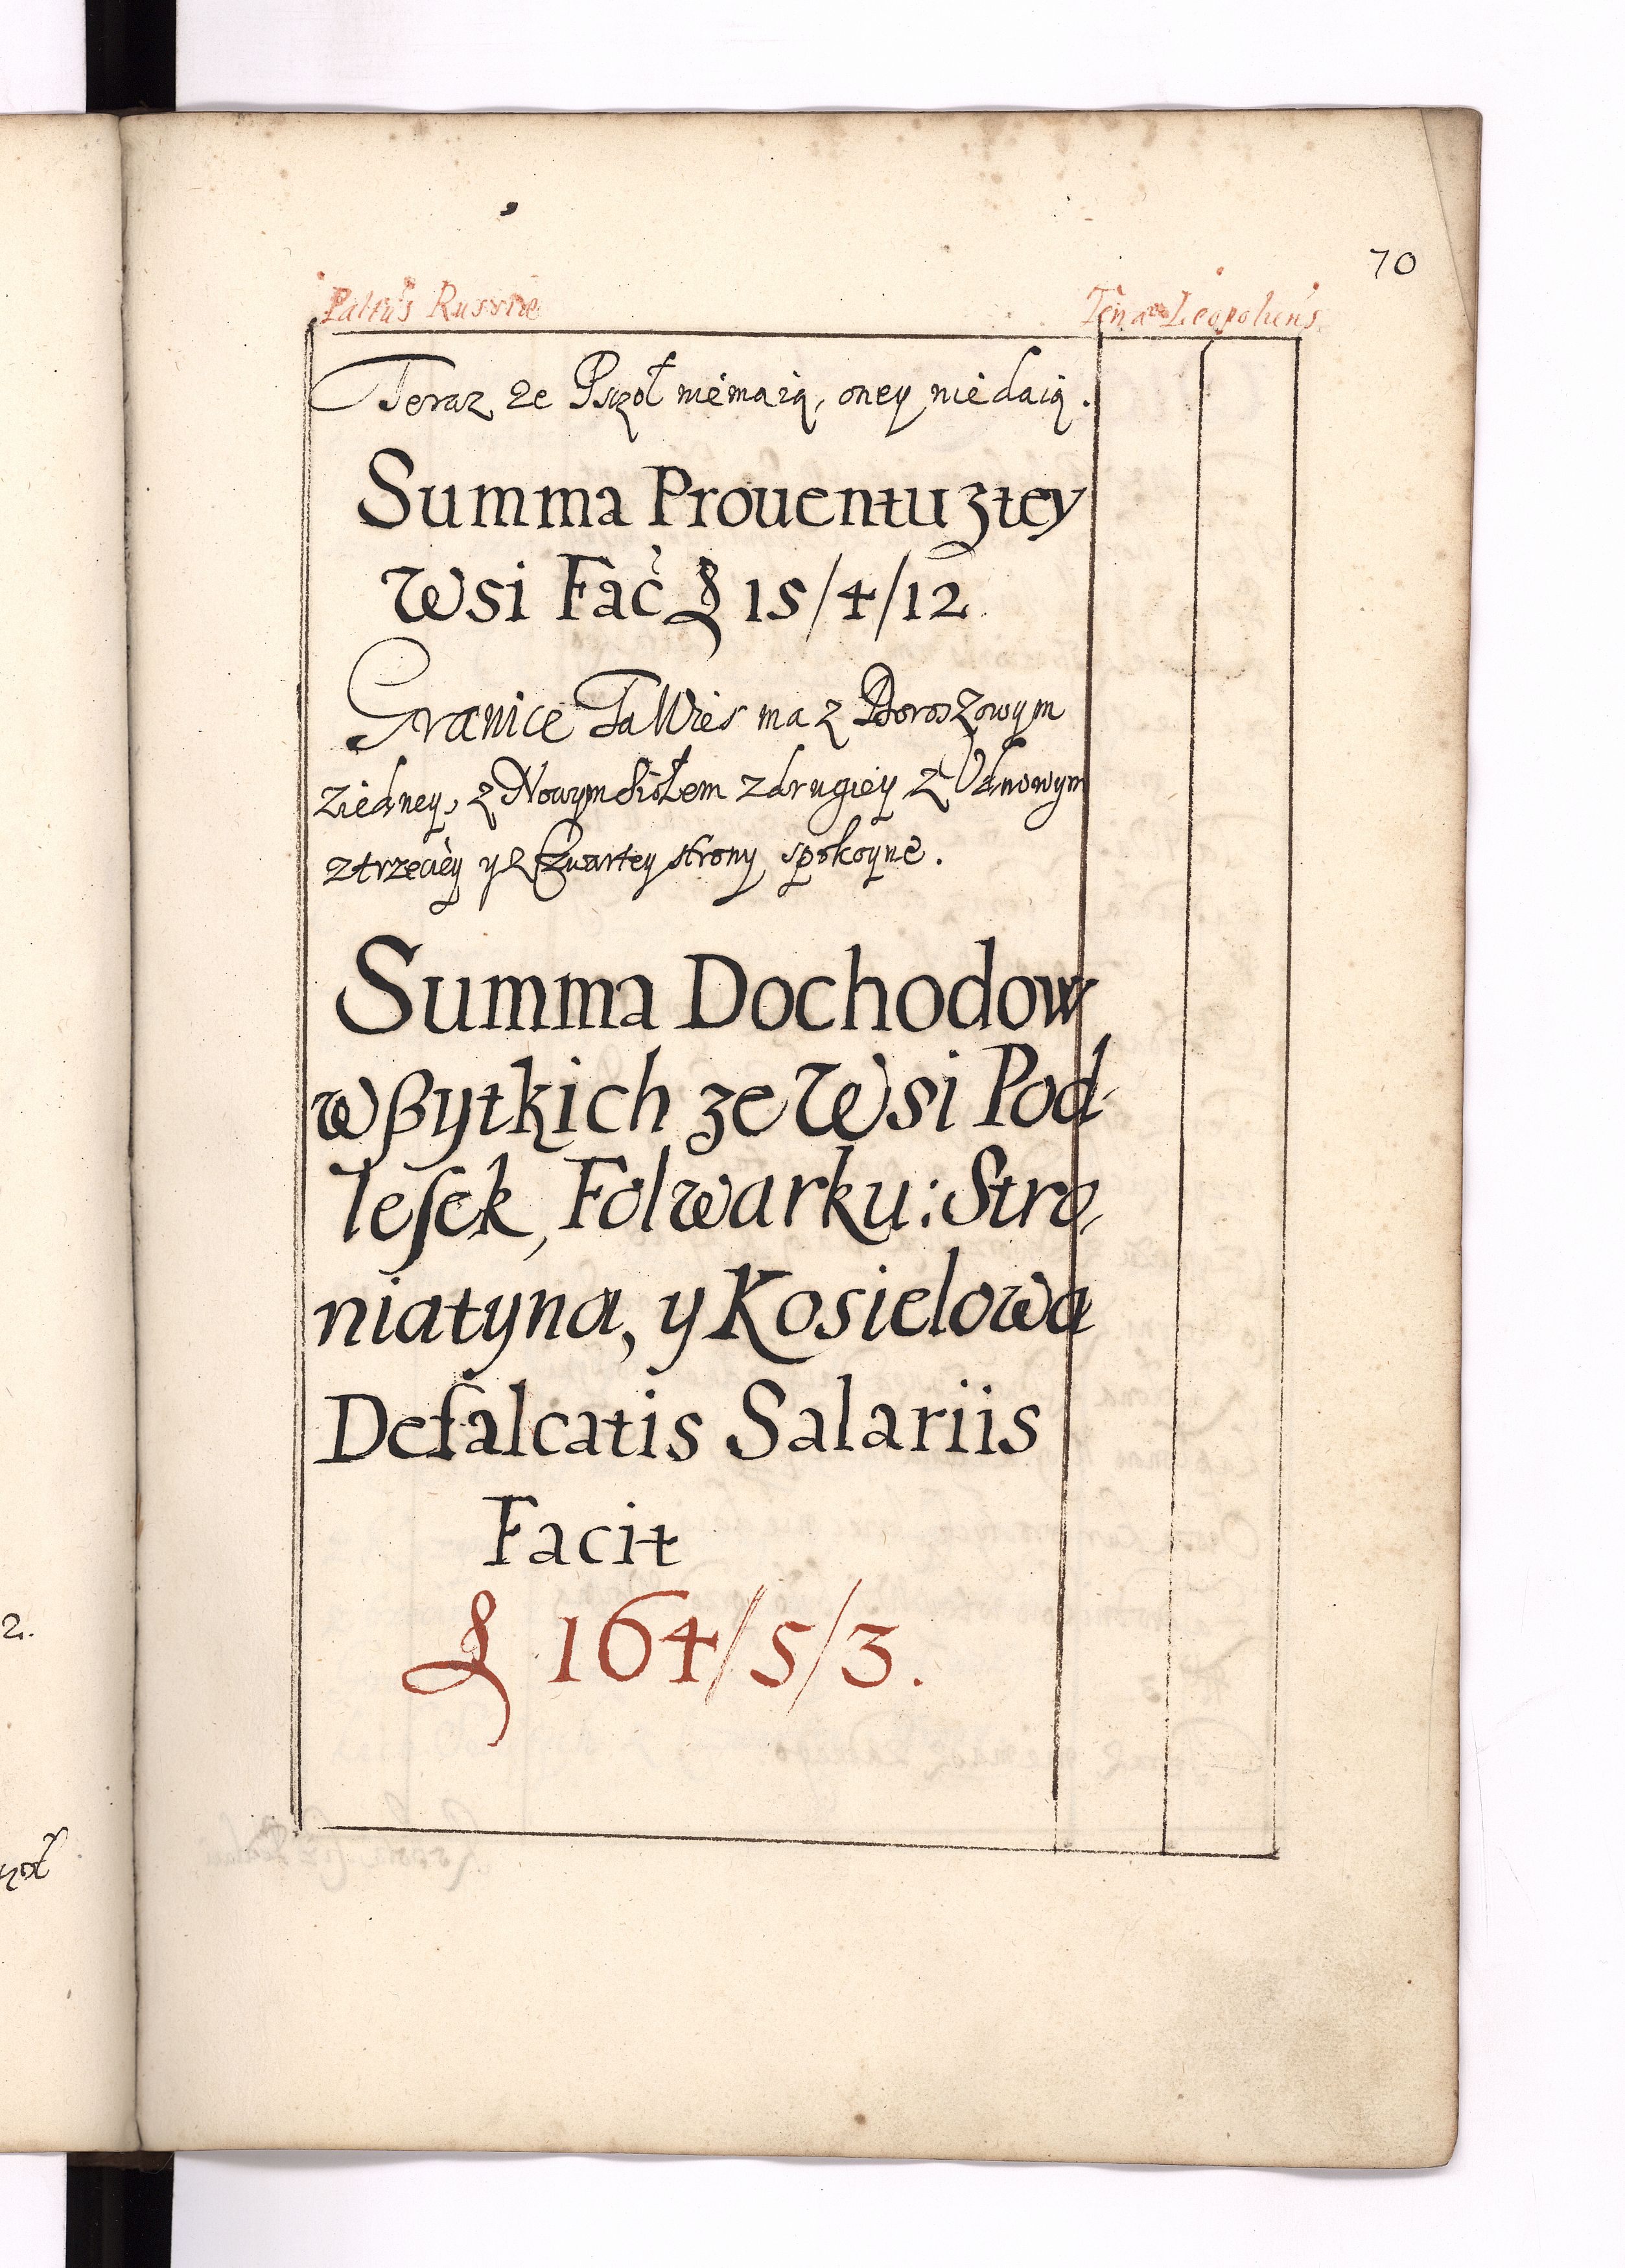 70
Palťus Russiae
Terrae Leopoliens
Teraz że Psczoł niemaią, oney niedaią.
Summa Prouentu z tey
Wsi Fac ƒ 15/4/12
Granice Ta Wies ma z Boroszowym
ziedney, z Nowym Siołem zdrugiey z Udnowym
ztrzeciey y z Czwartey strony spokoyne.
Summa Dochodow
wßytkich ze Wsi Pod-
leſek, Folwarku: Stro,
niatyna, y Kosielowa
Defalcatis Salariis
Facit
ƒ 164/5/3.
2.